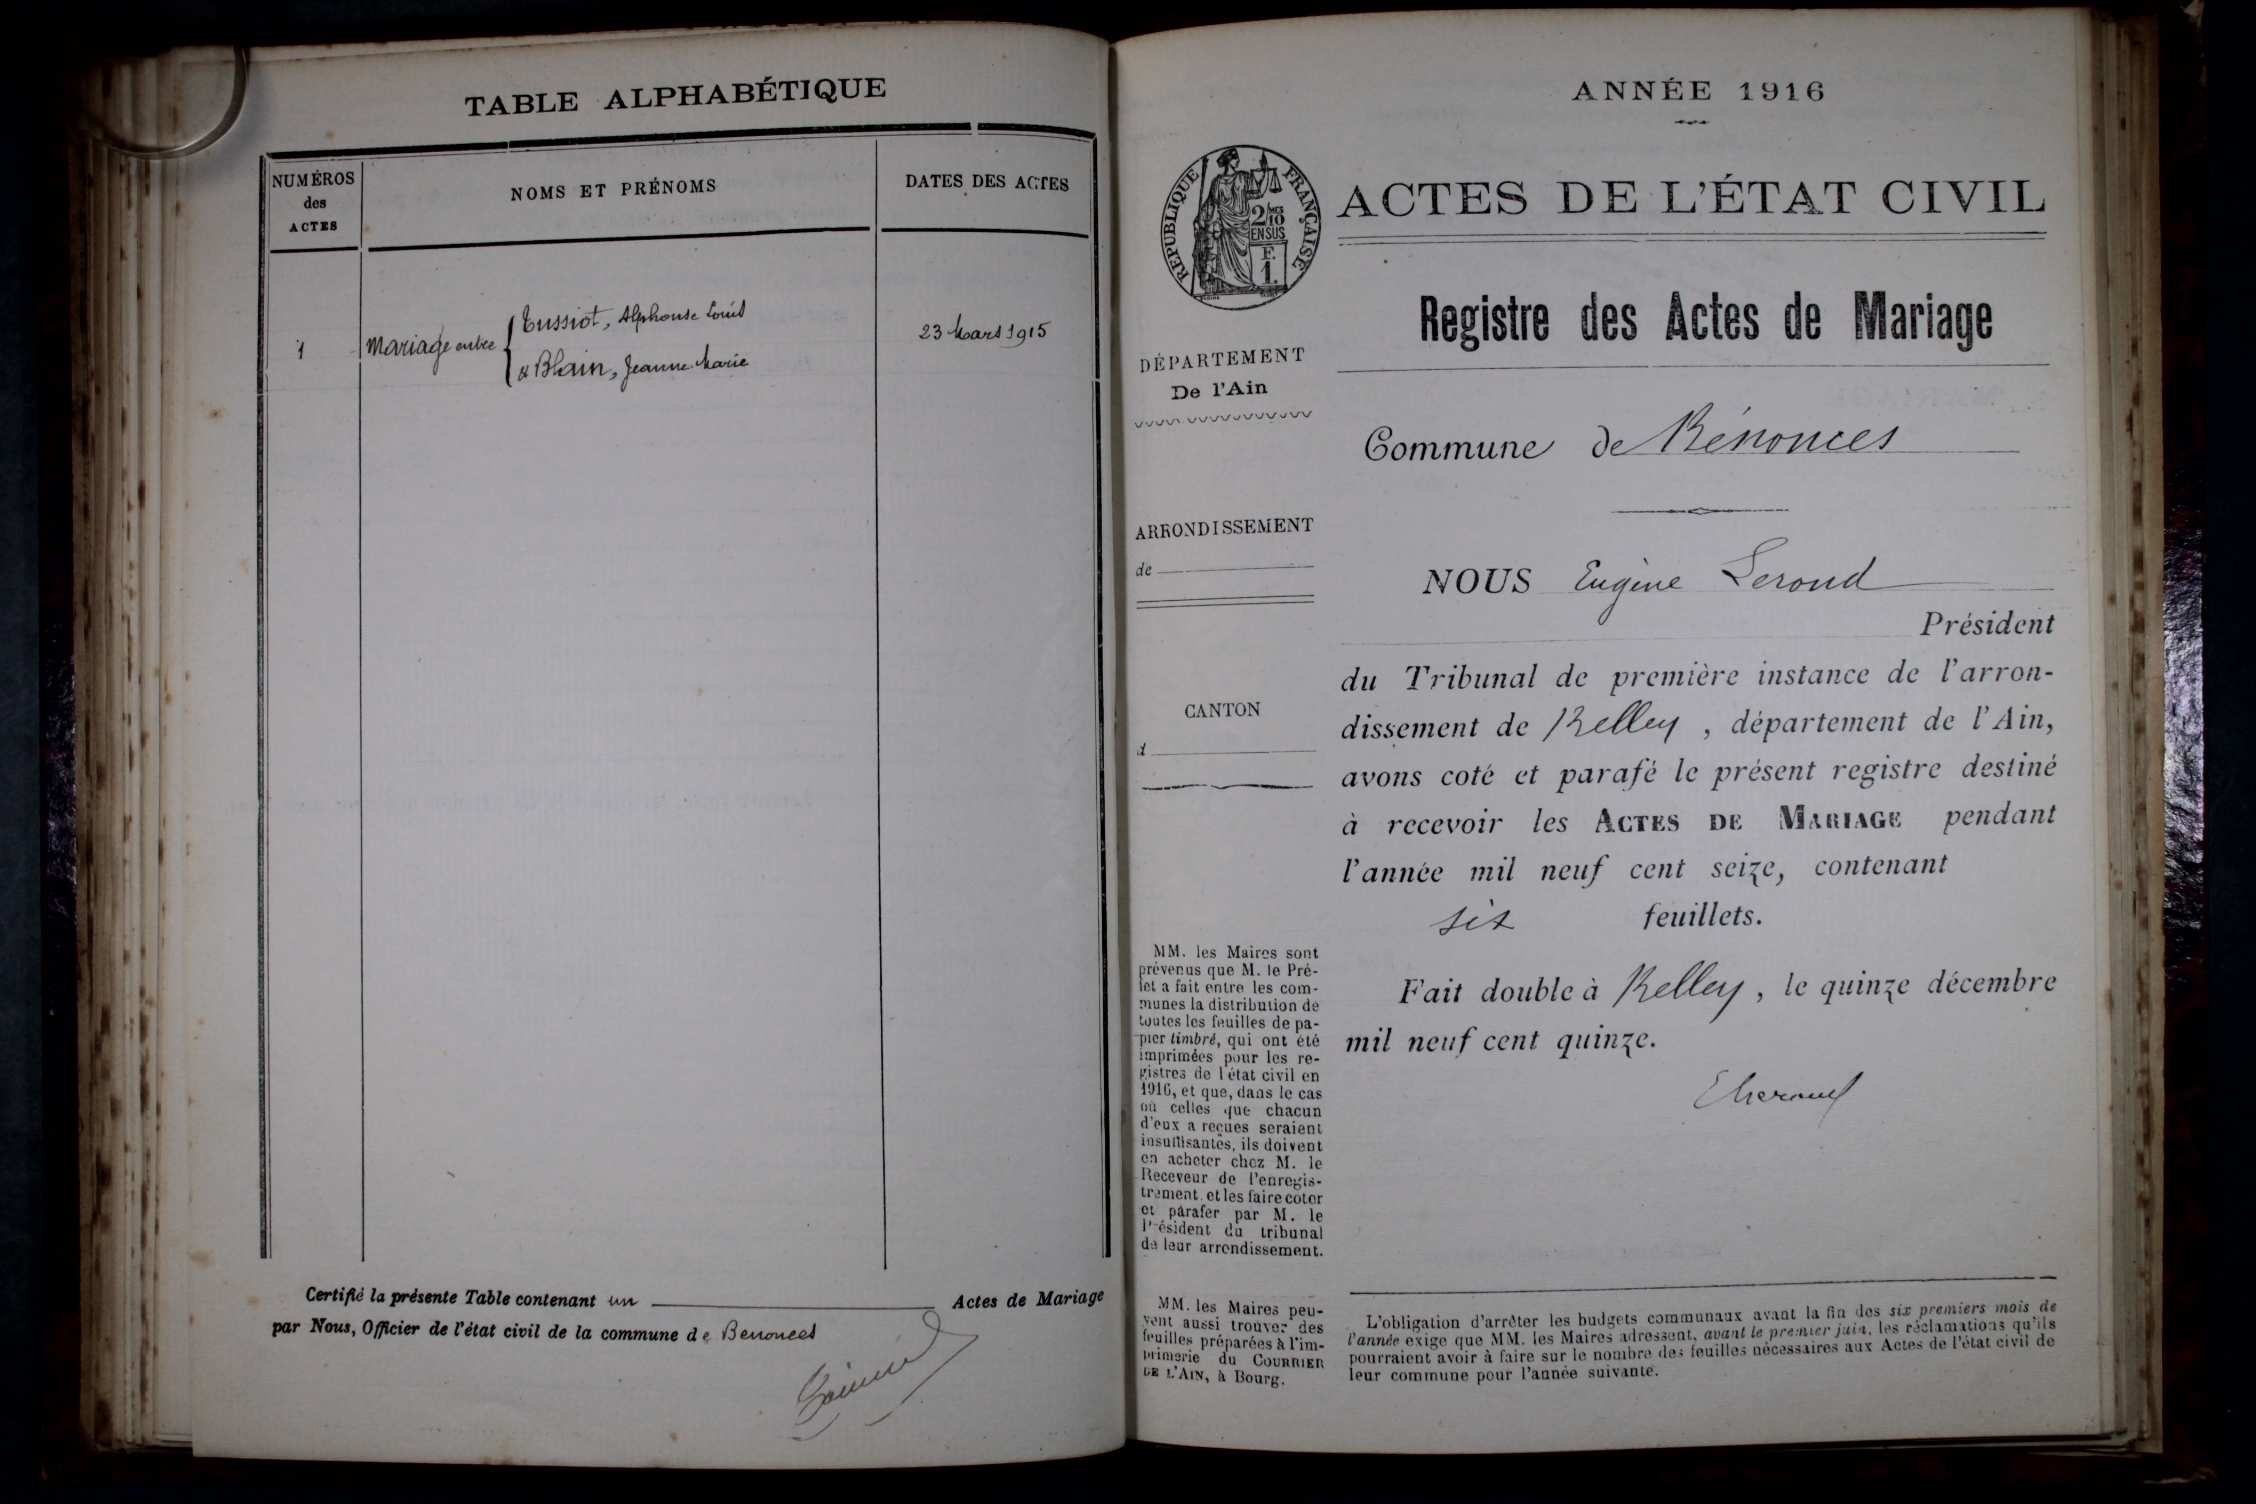 TABLE ALPHABÉTIQUE
NUMÉROS
des
ACTES
NOMS ET PRÉNOMS
DATES DES ACTES
1
Mariage entre
Tussiot, Alphonse Louis
& Blain, Jeanne Marie
23 Mars 1915
Certifié la présente Table contenant un Actes de Mariage
par Nous, Officier de l'état civil de la commune de Benonces
ANNÉE 1916
RÉPUBLIQUE FRANÇAISE
2/10
EN SUS
F.
1.
ACTES DE L'ÉTAT CIVIL
Registre des Actes de Mariage
DÉPARTEMENT
De l'Ain
ARRONDISSEMENT
de
CANTON
d
MM. les Maires sont
prévenus que M. le Pré-
fet a fait entre les com-
munes la distribution de
toutes les feuilles de pa-
pier timbré, qui ont été
imprimées pour les re-
gistres de l'état civil en
1916, et que, dans le cas
où celles que chacun
d'eux a reçues seraient
insuffisantes, ils doivent
en acheter chez M. le
Receveur de l'enregis-
trement, et les faire coter
et parafer par M. le
Président du tribunal
de leur arrondissement.
MM. les Maires peu-
vent aussi trouver des
feuilles préparées à l'im-
primerie du COURRIER
DE L'AIN, à Bourg.
Commune de Bénonces
NOUS Eugène Leroud
Président
du Tribunal de première instance de l'arron-
dissement de Belley, département de l'Ain,
avons coté et parafé le présent registre destiné
à recevoir les ACTES DE MARIAGE pendant
l'année mil neuf cent seize, contenant
six feuillets.
Fait double à Belley, le quinze décembre
mil neuf cent quinze.
L'obligation d'arrêter les budgets communaux avant la fin des six premiers mois de
l'année exige que MM. les Maires adressent, avant le premier juin, les réclamations qu'ils
pourraient avoir à faire sur le nombre des feuilles nécessaires aux Actes de l'état civil de
leur commune pour l'année suivante.